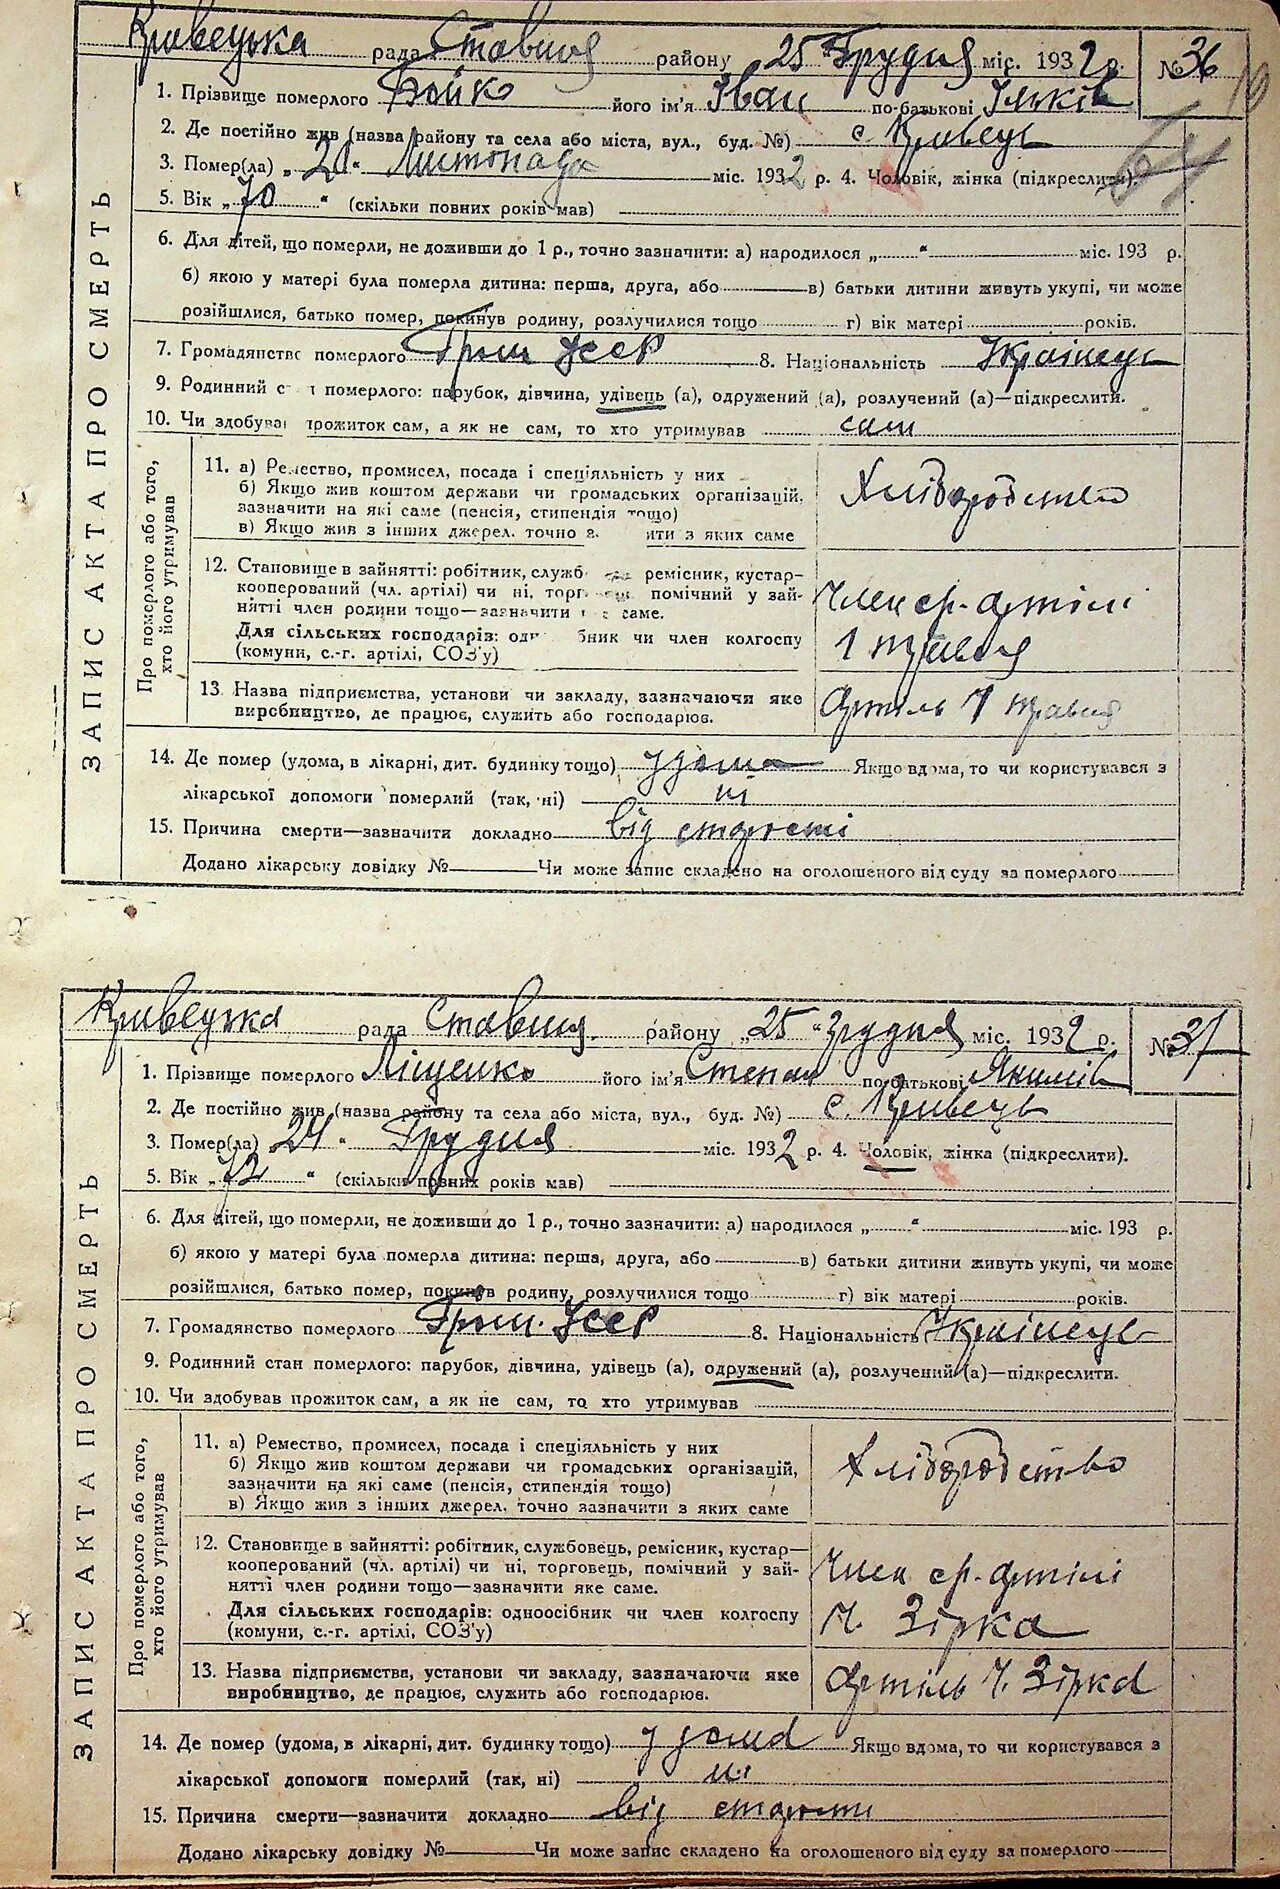 Кривецька рада Ставищ району 25 Грудня міс. 1932 р. № 36
1. Прізвище померлого Бойко його ім'я Іван по-батькові Ільків
2. Де постійно жив (назва району та села або міста, вул., буд. №) с. Кривець
3. Помер(ла) „ “ Листопада міс. 1932 р. 4. Чоловік, жінка (підкреслити).
5. Вік „70“ (скільки повних років мав)
6. Для дітей, що померли, не доживши до 1 р., точно зазначити: а) народилося „ “ міс. 193 р.
б) якою у матері була померла дитина: перша, друга, або в) батьки дитини живуть укупі, чи може
розійшлися, батько помер, покинув родину, розлучилися тощо г) вік матері років.
7. Громадянство померлого Гром УССР 8. Національність Українець
9. Родинний с т померлого: парубок, дівчина, удівець (а), одружений (а), розлучений (а)—підкреслити.
10. Чи здобував прожиток сам, а як не сам, то хто утримував сам
ЗАПИС АКТА ПРО СМЕРТЬ
Про померлого або того,
хто його утримував
11. а) Ремество, промисел, посада і спеціяльність у них
б) Якщо жив коштом держави чи громадських організацій,
зазначити на які саме (пенсія, стипендія тощо)
в) Якщо жив з інших джерел. точно з ити з яких саме
Хліборобство
12. Становище в зайнятті: робітник, служб ремісник, кустар—
кооперований (чл. артілі) чи ні, торг помічний у зай-
нятті член родини тощо—зазначити саме.
Для сільських господарів: од бник чи член колгоспу
(комуни, с.-г. артілі, СОЗ'у)
Член ср.-артілі
1 травня
13. Назва підприємства, установи чи закладу, зазначаючи яке
виробництво, де працює, служить або господарює.
Артіль 1 травня
14. Де помер (удома, в лікарні, дит. будинку тощо) удома Якщо вдома, то чи користувався з
лікарської допомоги померлий (так, ні) ні
15. Причина смерти—зазначити докладно від старості
Додано лікарську довідку № Чи може запис складено на оголошеного від суду за померлого
Кривецька рада Ставищ. району „25“ Грудня міс. 1932 р. № 37
1. Прізвище померлого Ліщенко його ім'я Степан по-батькові Якимів
2. Де постійно жив (назва району та села або міста, вул., буд. №) с. Кривець
3. Помер(ла) 24“ Грудня міс. 1932 р. 4. Чоловік, жінка (підкреслити).
5. Вік „72“ (скільки повних років мав)
6. Для дітей, що померли, не доживши до 1 р., точно зазначити: а) народилося „ “ міс. 193 р.
б) якою у матері була померла дитина: перша, друга, або в) батьки дитини живуть укупі, чи може
розійшлися, батько помер, покинув родину, розлучилися тощо г) вік матері років.
7. Громадянство померлого Гром. УССР 8. Національність Українець
9. Родинний стан померлого: парубок, дівчина, удівець (а), одружений (а), розлучений (а)—підкреслити.
10. Чи здобував прожиток сам, а як не сам, то хто утримував
ЗАПИС АКТА ПРО СМЕРТЬ
Про померлого або того,
хто його утримував
11. а) Ремество, промисел, посада і спеціяльність у них
б) Якщо жив коштом держави чи громадських організацій,
зазначити на які саме (пенсія, стипендія тощо)
в) Якщо жив з інших джерел. точно зазначити з яких саме
Хліборобство
12. Становище в зайнятті: робітник, службовець, ремісник, кустар—
кооперований (чл. артілі) чи ні, торговець, помічний у зай-
нятті член родини тощо—зазначити яке саме.
Для сільських господарів: одноосібник чи член колгоспу
(комуни, с.-г. артілі, СОЗ'у)
Член ср.-артілі
Ч. Зірка
13. Назва підприємства, установи чи закладу, зазначаючи яке
виробництво, де працює, служить або господарює.
Артіль Ч. Зірка
14. Де помер (удома, в лікарні, дит. будинку тощо) удома Якщо вдома, то чи користувався з
лікарської допомоги померлий (так, ні) ні
15. Причина смерти—зазначити докладно від старости
Додано лікарську довідку № Чи може запис складено на оголошеного від суду за померлого